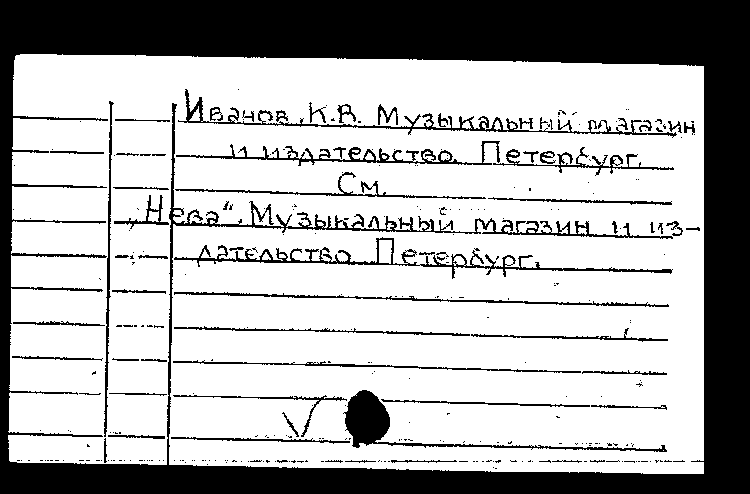 Иванов, К.В. Музыкальный магазин
и издательство. Петербург.
См.
„Нева“. Музыкальный магазин и из-
дательство. Петербург.